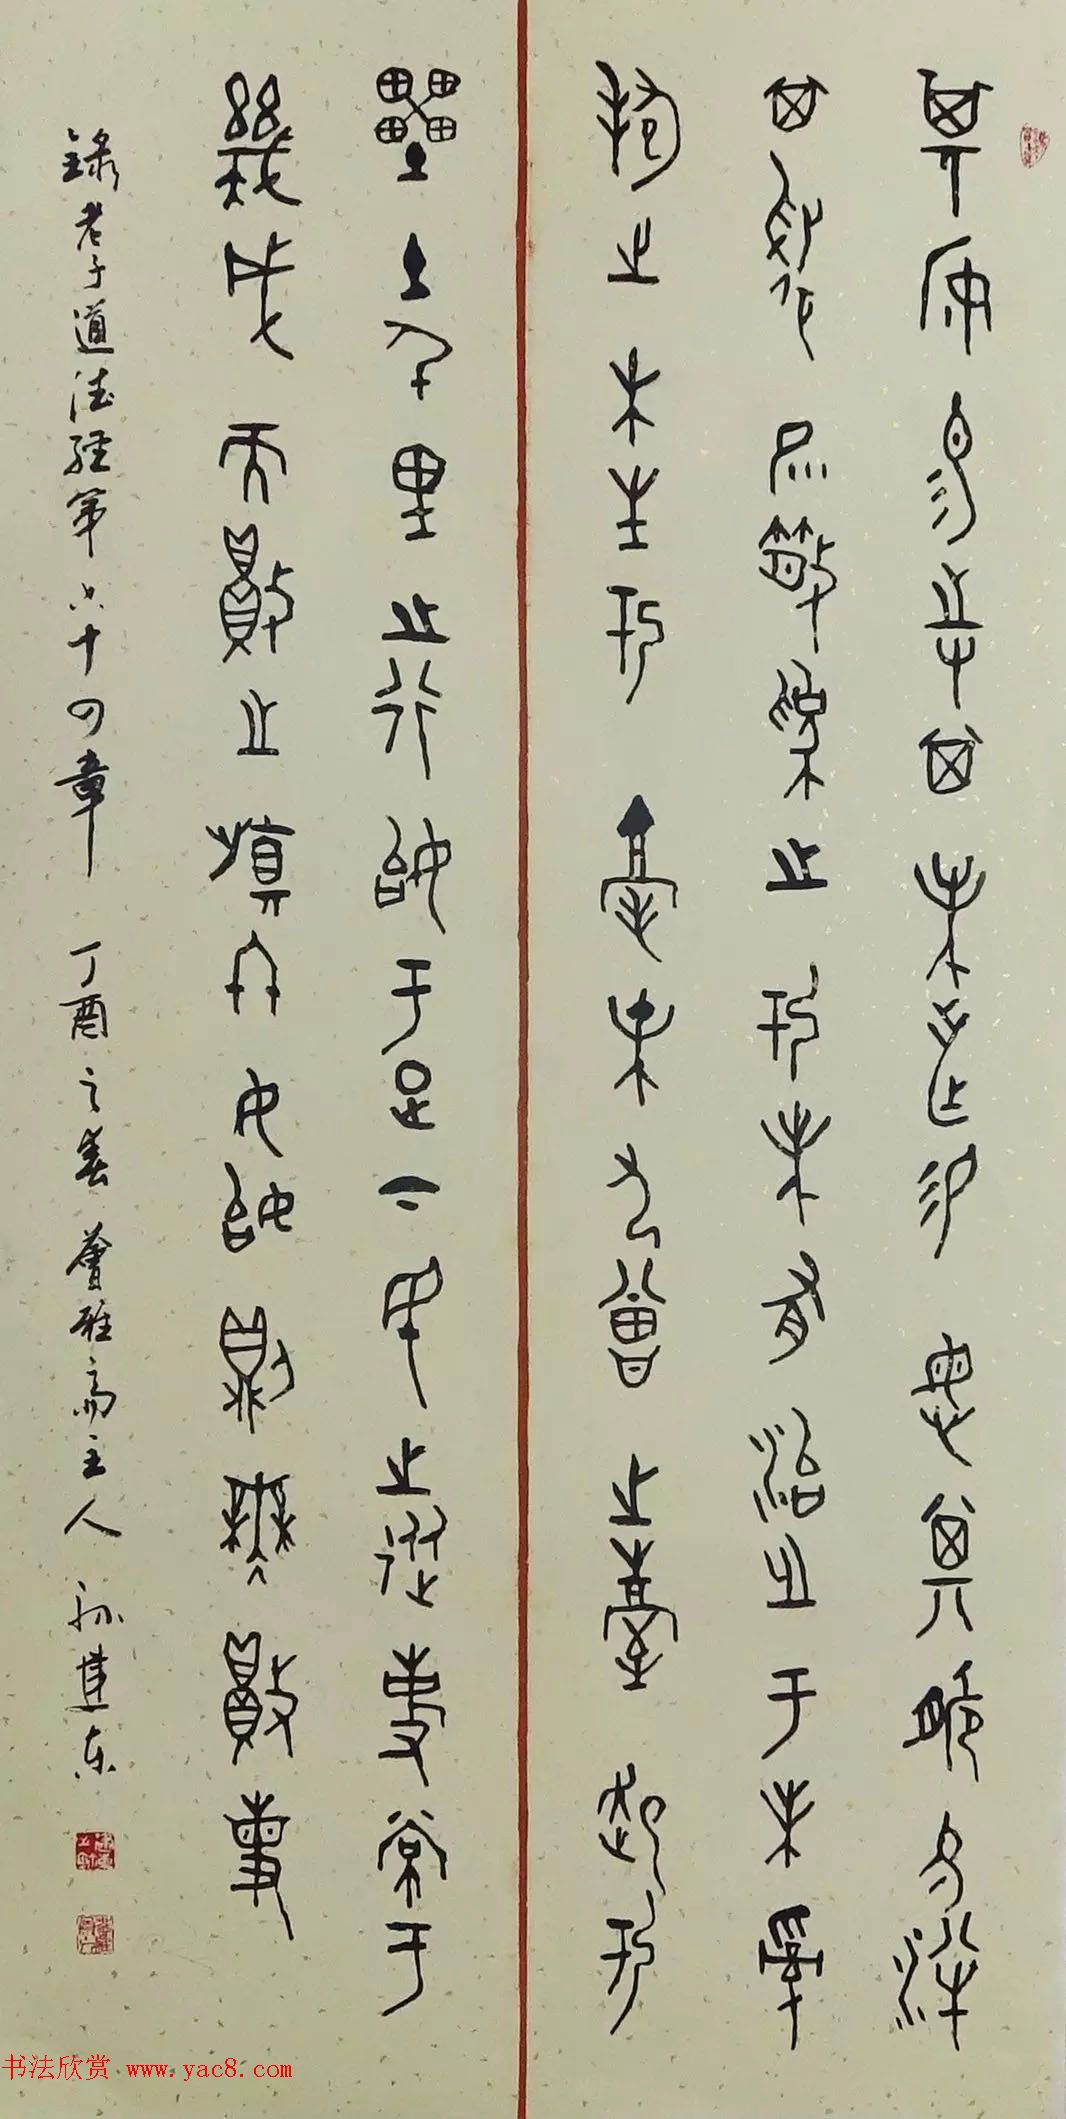 其安易持其未兆易謀其脆易泮
其微易散為之於未有治之于未亂
抱之木生於毫末九層之臺起於
累土千里之行始于足下民之從事常于
幾成而敗之慎終女始則無敗事
錄老子道德經第六十四章 丁酉之春 薈雅齋主人 孫建東
书法欣赏 www.yac8.com